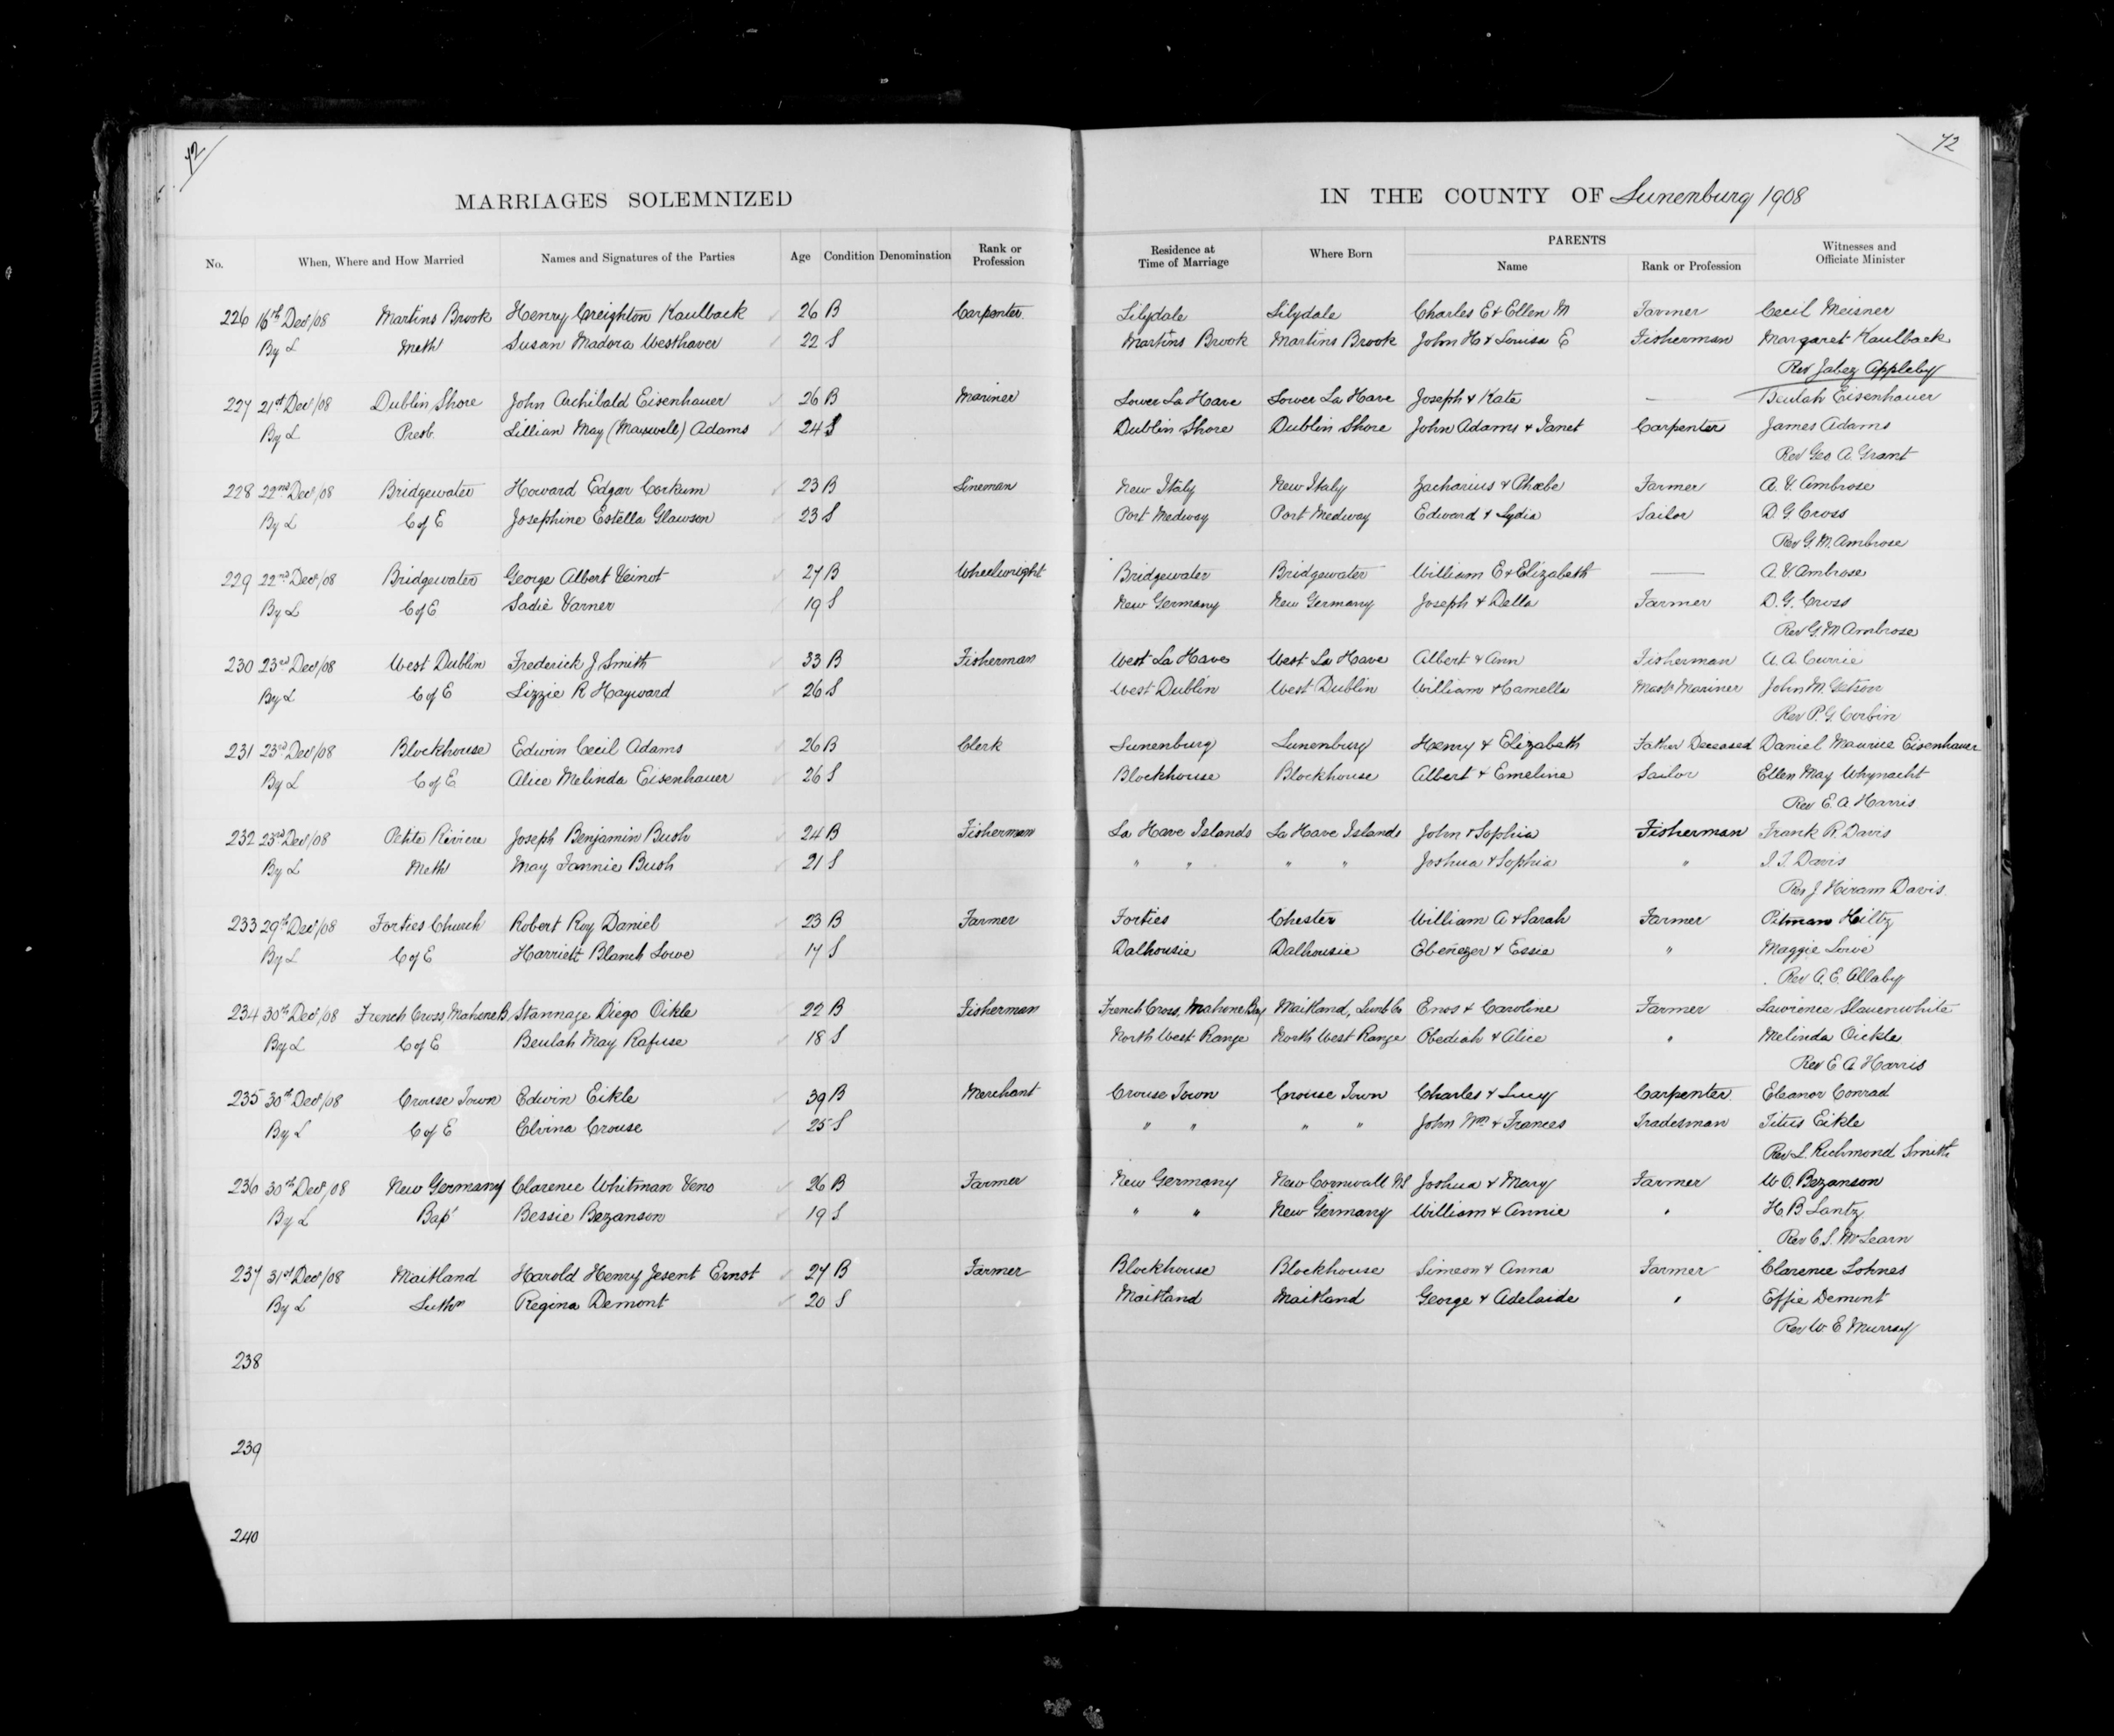 72
72
MARRIAGES SOLEMNIZED
IN THE COUNTY OF Lunenburg 1908
No. When, Where and How Married Names and Signatures of the Parties Age Condition Denomination Rank or Profession Residence at Time of Marriage Where Born PARENTS Name Rank or Profession Witnesses and Officiate Minister
226 16th Decr/08 Martins Brook Henry Creighton Kaulback 26 B Carpenter Lilydale Lilydale Charles E & Ellen M Farmer Cecil Meisner
By L Meth Susan Madora Westhaver 22 S Martins Brook Martins Brook John H & Louisa E Fisherman Margaret Kaulback
Rev Jabez Appleby
227 21st Decr/08 Dublin Shore John Archibald Eisenhauer 26 B Mariner Lower La Have Lower La Have Joseph & Kate — Beulah Eisenhauer
By L Presb. Lillian May (Maxwell) Adams 24 S Dublin Shore Dublin Shore John Adams & Janet Carpenter James Adams
Rev Geo A. Grant
228 22nd Decr/08 Bridgewater Howard Edgar Corkum 23 B Lineman New Italy New Italy Zacharius & Phoebe Farmer A. V. Ambrose
By L C of E Josephine Estella Glawson 23 S Port Medway Port Medway Edward & Lydia Sailor D. G. Cross
Rev G. M. Ambrose
229 22nd Decr/08 Bridgewater George Albert Veinot 27 B Wheelwright Bridgewater Bridgewater William E & Elizabeth — A. V. Ambrose
By L C of E Sadie Varner 19 S New Germany New Germany Joseph & Della Farmer D. G. Cross
Rev G. M Ambrose
230 23rd Decr/08 West Dublin Frederick J Smith 33 B Fisherman West La Have West La Have Albert & Ann Fisherman A. A Currie
By L C of E Lizzie R Hayward 26 S West Dublin West Dublin William & Camella Mastr Mariner John M. Getson
Rev P. G. Corbin
231 23rd Decr/08 Blockhouse Edwin Cecil Adams 26 B Clerk Lunenburg Lunenburg Henry & Elizabeth Father Deceased Daniel Maurice Eisenhauer
By L C of E Alice Melinda Eisenhauer 26 S Blockhouse Blockhouse Albert & Emeline Sailor Ellen May Whynacht
Rev E. A Harris
232 23rd Decr/08 Petite Riviere Joseph Benjamin Bush 24 B Fisherman La Have Islands La Have Islands John & Sophia Fisherman Frank R. Davis
By L Meth May Fannie Bush 21 S " " " " Joshua & Sophia " Davis
Rev J Hiram Davis
233 29th Decr/08 Forties Church Robert Roy Daniel 23 B Farmer Forties Chester William A & Sarah Farmer Pitman Hiltz
By L C of E Harriett Blanch Lowe 17 S Dalhousie Dalhousie Ebenezer & Essie " Maggie Lowe
Rev A. E. Allaby
234 30th Decr/08 French Cross, Mahone B. Stannage Diego Oikle 22 B Fisherman French Cross, Mahone Bay Maitland, Lunb Co Enos & Caroline Farmer Lawrence Slauenwhite
By L C of E Beulah May Rafuse 18 S North West Range North West Range Obediah & Alice " Melinda Oickle
Rev E. A. Harris
235 30th Decr/08 Crouse Town Edwin Eikle 39 B Merchant Crouse Town Crouse Town Charles & Lucy Carpenter Eleanor Conrad
By L C of E Elvina Crouse 25 S " " " " John Wm & Frances Tradesman Titus Eikle
Rev L. Richmond Smith
236 30th Decr/08 New Germany Clarence Whitman Veno 26 B Farmer New Germany New Cornwall NS Joshua & Mary Farmer W. O. Bezanson
By L Bapt Bessie Bezanson 19 S " " New Germany William & Annie " H. B. Lantz
Rev C. S. McLearn
237 31st Decr/08 Maitland Harold Henry Jesent Ernst 27 B Farmer Blockhouse Blockhouse Simeon & Anna Farmer Clarence Lohnes
By L Luthn Regina Demont 20 S Maitland Maitland George & Adelaide " Effie Demont
Rev W. E Murray
238
239
240